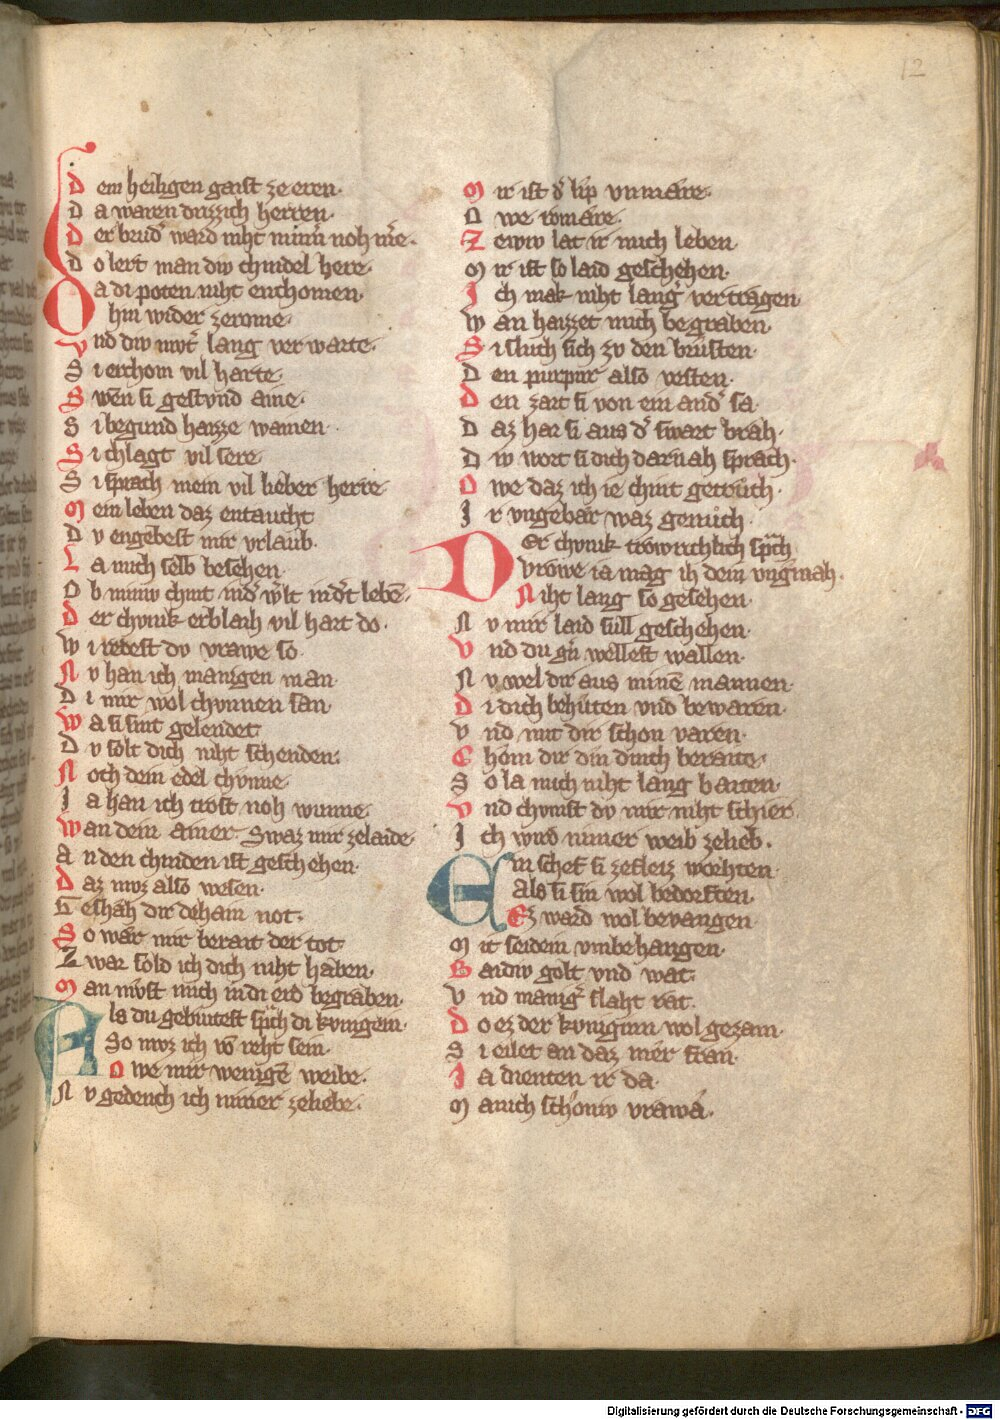 12
Dem heiligen gaist ze eren·
Da waren drizzich herren·
Der brud͛ ward niht minn͛ noh me͛·
Do lert man div chindel here·
Da di poten niht enchomen·
hin wider zerome·
Vnd div mvt͛ lang ver warte·
Si erchom vil harte·
Swen si gestvnd aine·
Si begund haizze wainen·
Si chlagt vil sere·
Si sprach mein vil lieber herre·
Mein leben daz entaucht
Dv engebest mir vrlaub·
La mich selb besehen·
Ob miniv chint ind͛ w͛lt ind͛t lebē·
Der chvnik erblaih vil hart do·
Wi redest dv vrawe so·
Nv han ich manigen man·
Di mir wol chvnnen san·
Wa si sint gelendet
Dv solt dich niht schenden·
Noch dem edel chvnne·
Ja han ich trost noh wnne·
Wan dein ainer Swaz mir zelaide·
An den chinden ist gesch ehen·
Daz mvz also wesen·
Geshah dir dehain not·
So war mir berait der tot·
Zwar sold ich dich niht haben·
Man mvst mich in di erd begraben·
Als du gebiutest sp͛ch di kvngein·
So mvz ich vō reht sein·
Owe mir wenigē weibe·
Nv gedench ich nimer zeliebe·
Mir ist d͛ lip vnmare·
Owe romare·
Zewiv lat ir mich leben
Mir ist so laid geschehen·
Ich mak niht lang͛ vertragen·
Wan haizzet mich begraben·
Si sluch sich zv den brusten·
Den purpur also vesten·
Den zart si von ein and͛ sa·
Daz har si aus d͛ swart brah·
Div wort si dich darnah sprach·
Owe daz ich ie chint getruch·
Ir vngebar waz genuch·
Der chvnik trowrichlich sp͛ch
Vrowe ia mag ih dein vngmah·
Niht lang so gesehen·
Nv mir laid sull geschehen·
Vnd du g͛n wellest wallen·
Nv wel dir aus minē mannen·
Di dich behuten vnd bewaren·
Vnd mit dir schon varen·
Chom dir din dinch beraite·
So la mich niht lang baiten·
Vnd chvmst dv mir niht schier·
Ich wird nimer weib zelieb·
Ein schef si zefleiz worhten·
Als si sin wol bedorften·
Ez ward wol bevangen·
Mit seidein vmbehangen·
Baidiv golt vnd wat·
Vnd manig͛ slaht rat·
Do ez der kvniginn wol gezam·
Si eilet an daz mer stan·
Ja dienten ir da·
Manich schoniv vrawa·
Digitalisierung gefördert durch die Deutsche Forschungsgemeinschaft - DFG